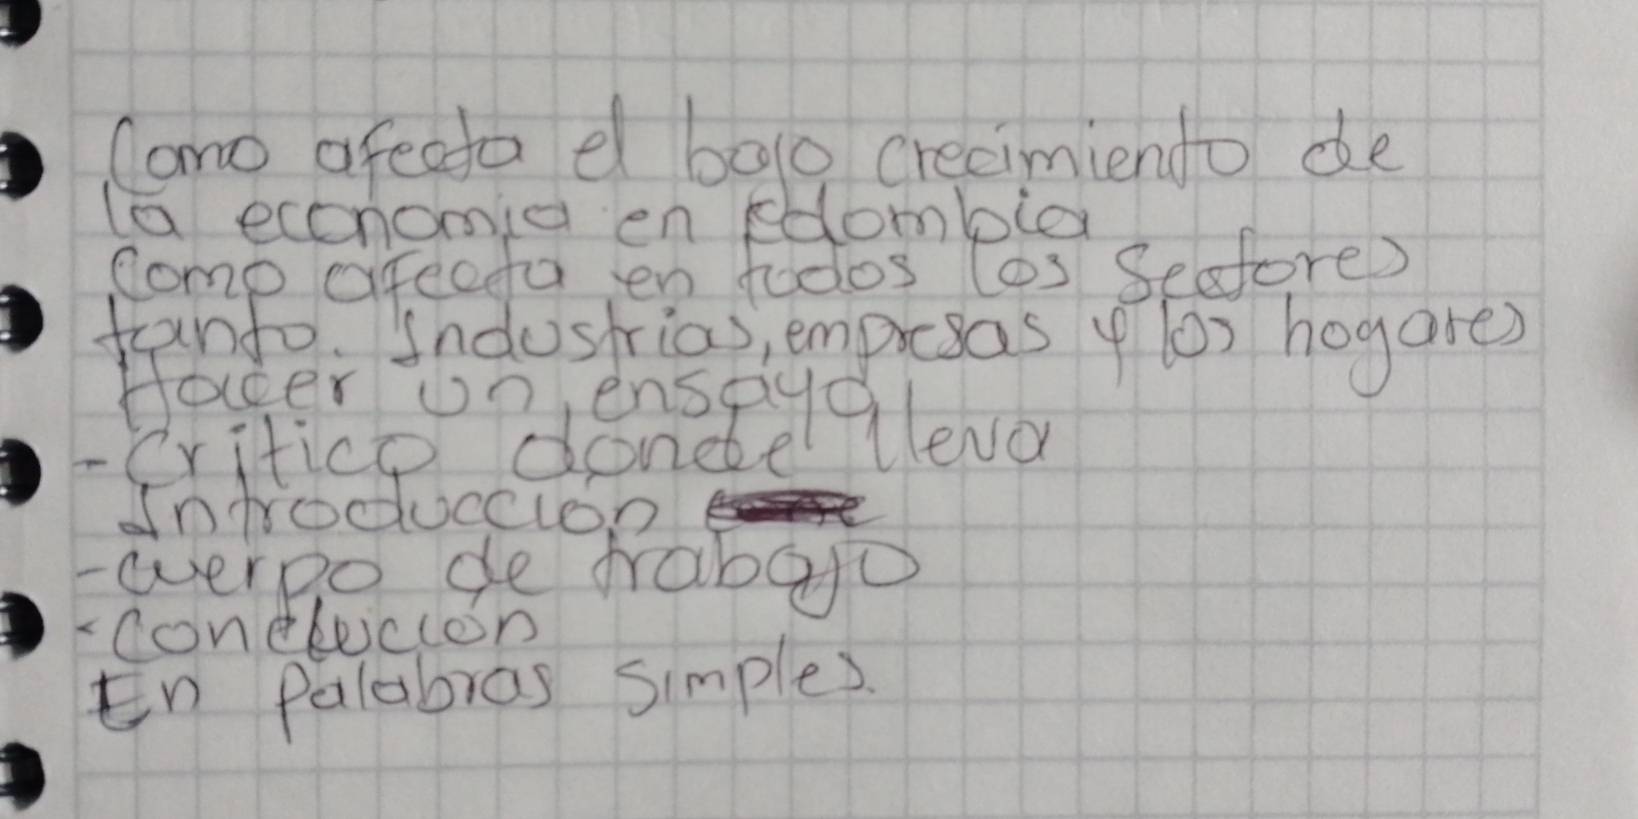 Como afecta el bajo crecimiento de
la economia en Colombia
Como afecta en todos los Sectores
tanto. Industrias, empresas y los hogares
Hacer un ensayo
- Crítico donde lleva
Introducción
- cuerpo de trabajo
- conclución
En palabras simples.